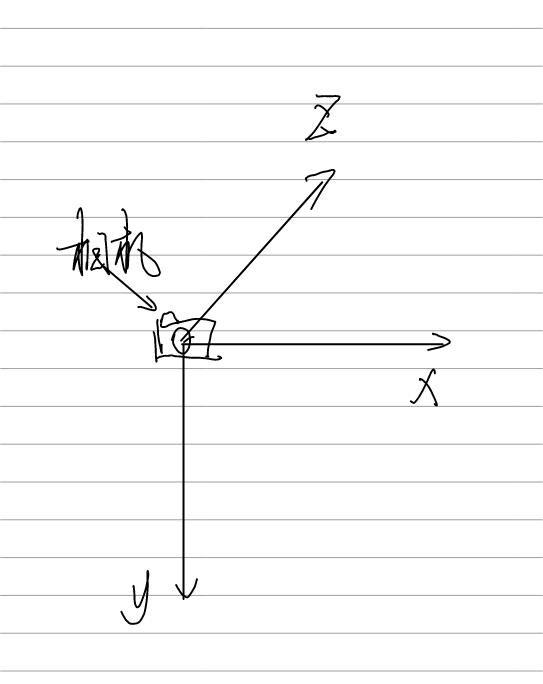 Z
相机
x
y